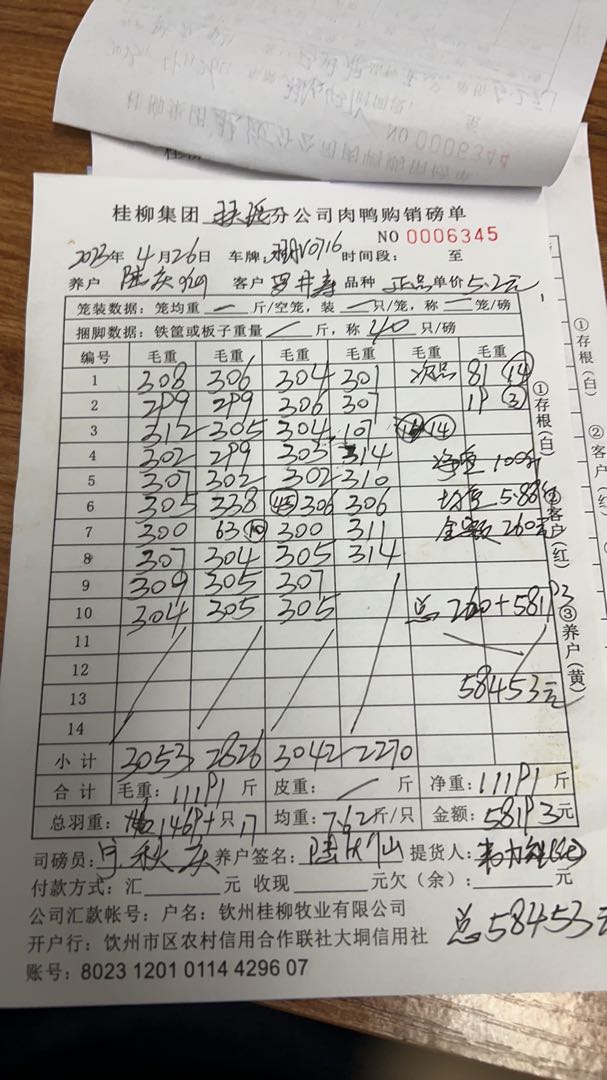 NO 0006344
桂柳集团 扶绥 分公司肉鸭购销磅单
NO 0006345
2023年 4月26日 车牌: V0716 时间段: 至
养户 陆庆 客户 罗 寿 品种 正品 单价 5.2元
笼装数据: 笼均重 一 斤/空笼, 装 一 只/笼, 称 一 笼/磅
捆脚数据: 铁筐或板子重量 / 斤, 称 40 只/磅
编号 毛重 毛重 毛重 毛重 毛重 毛重
1 308 306 304 301 次品 81 (14)
2 299 299 306 307 19 (3)
3 312 305 304 107 (14)
4 302 299 305 314 净重 100斤
5 307 302 302 310
6 305 238 (45) 306 306 均重 5.88
7 300 63 (10) 300 311 金额 260元
8 307 304 305 314
9 309 305 307
10 304 305 305 总 260+58193
11
12
13 58453元
14
小计 3053 2826 3042 2270
合计 毛重: 11191 斤 皮重: / 斤 净重: 11191 斤
总羽重: 1469+ 只 17 均重: 7.62 斤/只 金额: 58193元
司磅员: 宁秋庆 养户签名: 陆 仙 提货人:
付款方式: 汇 元 收现 元欠(余): 元
公司汇款帐号: 户名: 钦州桂柳牧业有限公司
开户行: 饮州市区农村信用合作联社大垌信用社 总58453元
账号: 8023 1201 0114 4296 07
①存根(白)
②客户(红)
③养户(黄)
①存根(白)
②客户(红)
③养户(黄)